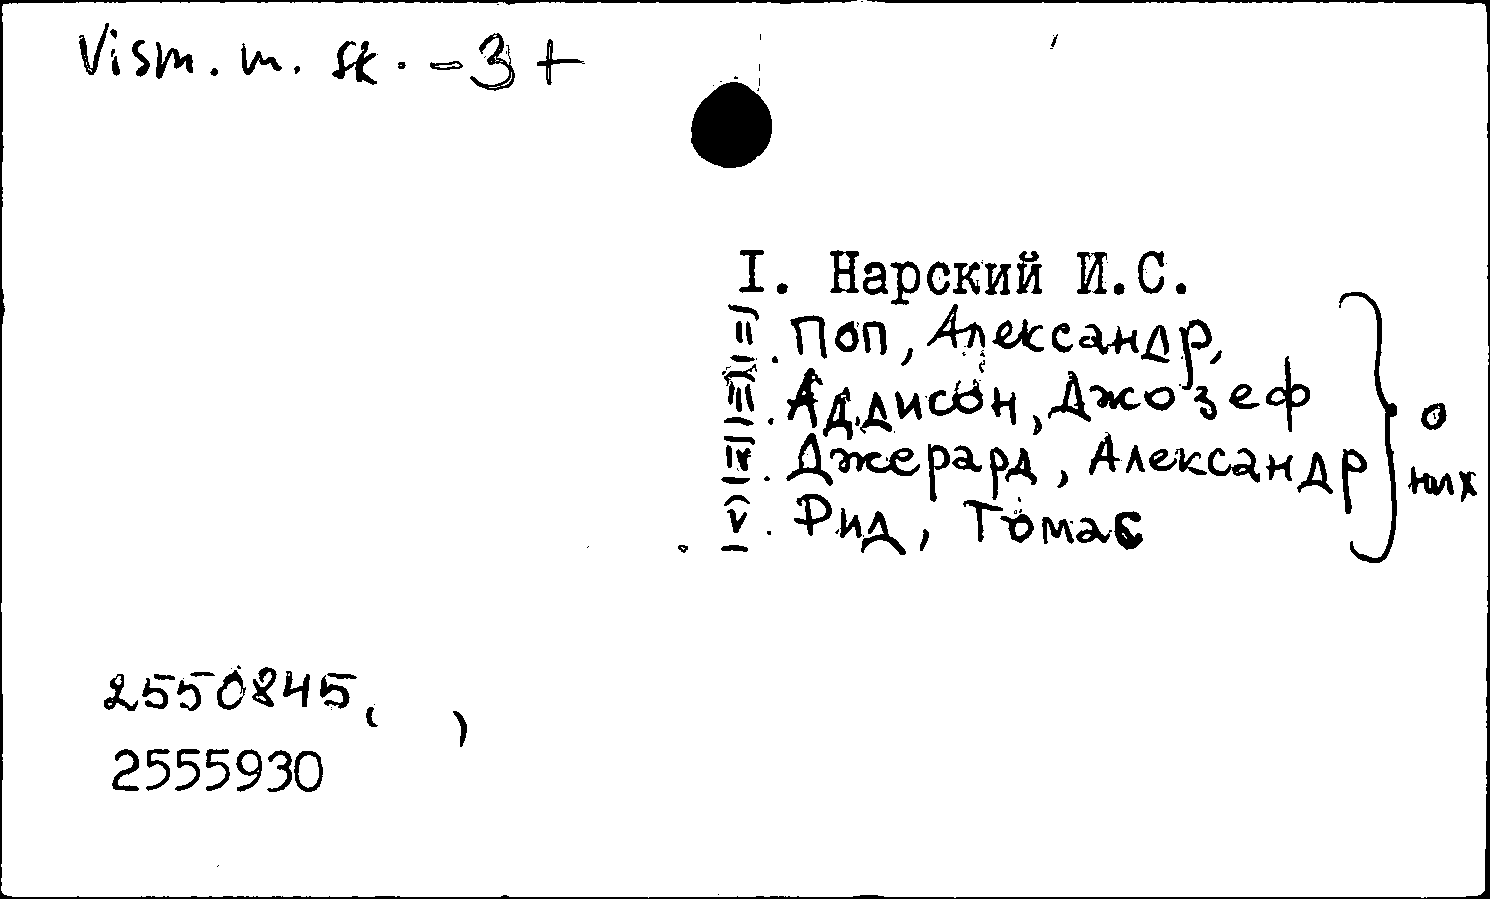 Vism. m. sk. - 3 +
I. Нарский И.С.
II. Поп, Александр,
III. Аддисон, Джозеф
IV. Джерард, Александр
V. Рид, Томас
} о них
2550845,
2555930